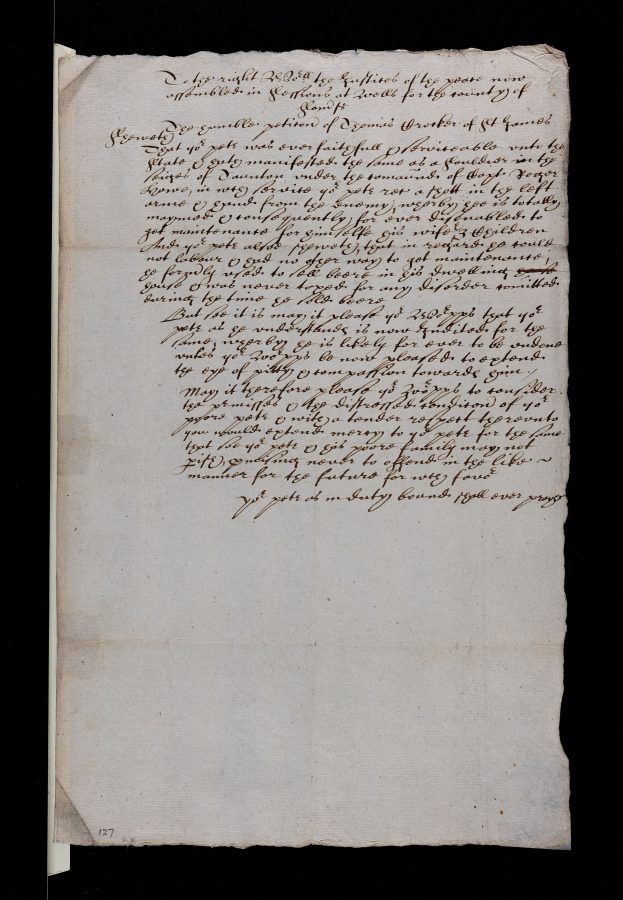 To the right Wor:ll the Justices of the peace now
assembled in Sessions at Wells for the County of
Somst
The humble petition of Thomas Crocker of St James
Sheweth
That yor petr was ever faithfull & serviceable unto the
State & hath manifested the same as a Souldier in the
seidge of Taunton under the comaund of Capt
Howe, in wch service yor petr rec a shott in the left
arme & hand from the Enemy, wherby hee is totally
maymed & consequently for ever disenabled to
get maintenance for himselfe his wife & Children
And yor petr alsoe sheweth, that in regard he could
not labour & had no other way to get maintenance,
he formrly used to sell beere in his dwelling
house & was never taxed for any disorder comitted
during the time he sold beere
But soe it is may it please yor Worpps that yor
petr as he understands is now Indicted for the
same, wherby he is likely for ever to be undone
unles yor Worpps be now pleased to extend
the eye of pitty & compassion towards him /
May it therefore please yor Worpps to consider
the prmisses & the distressed condicon of yor
poore petr & with a tender respect thereunto
you would extend mercy to yor petr for the same
that soe yor petr & his poore family may not
pish, promising never to offend in the like
manner for the future for wch favor
yor petr as in duty bound shall ever praye
127